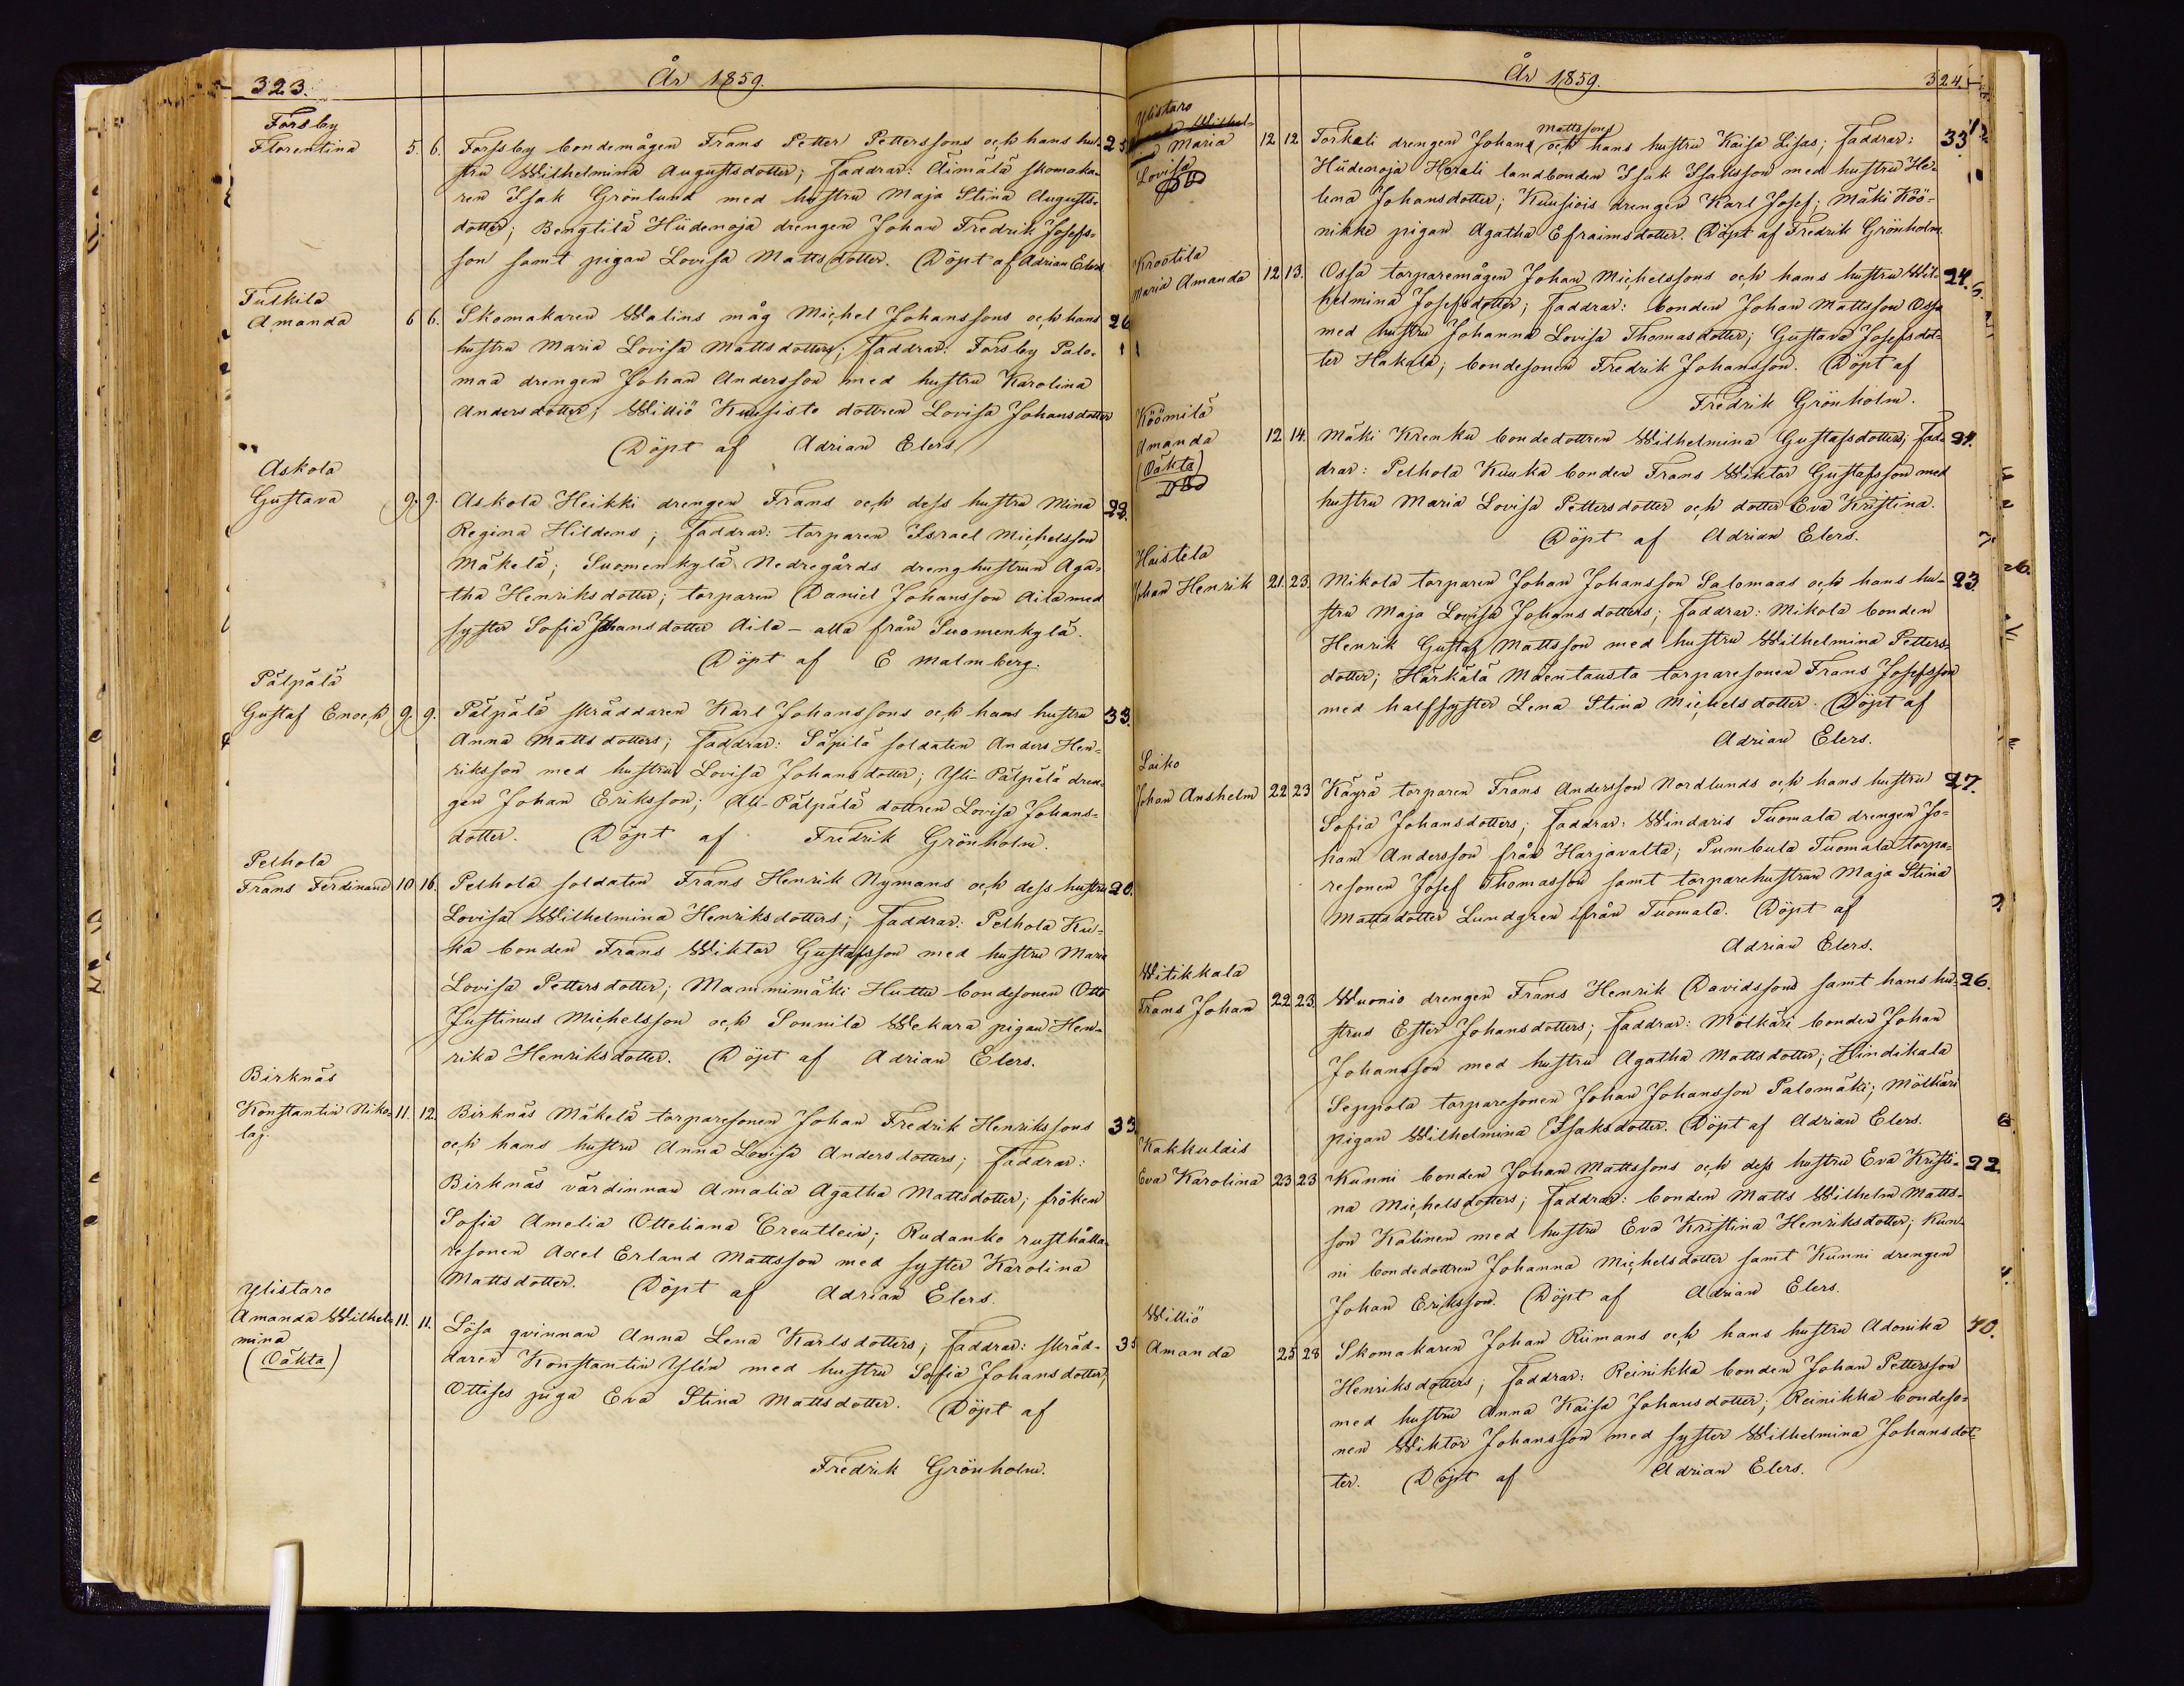 323.
År 1859.
Forsby
Florentina 5. 6. Forssby bondemågen Frans Petter Petterssons och hans hus- 25
tru Wilhelmina Augustsdotter; faddrar: Äimälä skomaka-
ren Isak Grönlund med hustru Maja Stina Augusts-
dotter; Bengtilä Hiidenoja drengen Johan Fredrik Josefs-
son samt pigan Lovisa Mattsdotter. Döpt af Adrian Elers
Tulkila
Amanda 6 6. Skomakaren Walins måg Michel Johanssons och hans 26
hustru Maria Lovisa Mattsdotters; faddrar: Forsby Palo-
maa drengen Johan Andersson med hustru Karolina
Andersdotter; Williö Kuusisto dottren Lovisa Johansdotter
Döpt af Adrian Elers
Askola
Gustava 9. 9. Askola Heikki drengen Frans och dess hustru Mina 22.
Regina Hildens; faddrar: torparen Israel Michelsson
Mäkelä; Suomenkylä Nedregårds drenghustrun Aga-
tha Henriksdotter; torparen Daniel Johansson Aila med
syster Sofia Johansdotter Aila – alla från Suomenkylä.
Döpt af E Malmberg.
Pälpälä
Gustaf Enoch 9. 9. Pälpälä skräddaren Karl Johanssons och hans hustru 33.
Anna Mattsdotters; faddrar: Säpilä soldaten Anders Hen-
riksson med hustru Lovisa Johansdotter; Yli-Pälpälä dren-
gen Johan Eriksson; Ali-Pälpälä dottren Lovisa Johans-
dotter. Döpt af Fredrik Grönholm.
Pelhola
Frans Ferdinand 10 16. Pelhola soldaten Frans Henrik Nymans och dess hustru 20.
Lovisa Wilhelmina Henriksdotters; faddrar: Pelhola Ku-
ka bonden Frans Wiktor Gustafsson med hustru Maria
Lovisa Pettersdotter; Mammimäki Huttu bondesonen Otto
Justinus Michelsson och Sonnila Wekara pigan Hen-
rika Henriksdotter. Döpt af Adrian Elers.
Birknäs
Konstantin Niko- 11. 12. Birknäs Mäkelä torparesonen Johan Fredrik Henrikssons 33.
laj.
och hans hustru Anna Lovisa Andersdotters; faddrar:
Birknäs värdinnan Amalia Agatha Mattsdotter; fröken
Sofia Amelia Otteliana Creutlein; Rudanko rusthålla-
resonen Axel Erland Mattsson med syster Karolina
Mattsdotter. Döpt af Adrian Elers.
Ylistaro
Amanda Wilhel- 11. 11. Lösa qvinnan Anna Lena Karlsdotters; faddrar: skräd- 35
mina
(Oäkta)
daren Konstantin Ylén med hustru Sofia Johansdotter,
Ottises piga Eva Stina Mattsdotter. Döpt af
Fredrik Grönholm.
År 1859.
324.
Ylistaro
Maria 12 12 Torkali drengen Johans Mattssons och hans hustru Kaisa Lisas; faddrar: 33
Lovisa
Hiidenoja Horali landbonden Isak Isaksson med hustru He-
lena Johansdotter; Kuusiois drengen Karl Josef; Mäki Köö-
nikke pigan Agatha Efraimsdotter. Döpt af Fredrik Grönholm.
Krootila
Maria Amanda 12 13. Ossa torparemågen Johan Michelssons och hans hustru Wil- 24.
helmina Josefsdotter; faddrar: bonden Johan Mattsson Ossa
med hustru Johanna Lovisa Thomasdotter; Gustava Josefsdot-
ter Hakala; bondesonen Fredrik Johansson. Döpt af
Fredrik Grönholm.
Köömilä
Amanda 12 14. Mäki Krenku bondedottren Wilhelmina Gustafsdotters; fad-
(Oäkta)
drar: Pelhola Kuuka bonden Frans Wiktor Gustafsson med
hustru Maria Lovisa Pettersdotter och dotter Eva Kristina.
Döpt af Adrian Elers.
Haistela
Johan Henrik 21. 23. Mikola torparen Johan Johansson Salomaas och hans hu- 23.
stru Maja Lovisa Johansdotters; faddrar: Mikola bonden
Henrik Gustaf Mattsson med hustru Wilhelmina Petters-
dotter; Härkälä Mäentausta torparesonen Frans Josefsson
med halfsyster Lena Stina Michelsdotter. Döpt af
Adrian Elers.
Laiko
Johan Anshelm 22 23 Käyrä torparen Frans Andersson Nordlunds och hans hustru 27.
Sofia Johansdotters; faddrar: Windaris Tuomala drengen Jo-
han Andersson från Harjavalta; Pumbula Tuomala torpa-
resonen Josef Thomasson samt torparehustrun Maja Stina
Mattsdotter Lundgren ifrån Tuomala. Döpt af
Adrian Elers.
Witikkala
Frans Johan 22 23. Wuonio drengen Frans Henrik Davidssons samt hans hu- 26.
strus Ester Johansdotters; faddrar: Mölkäri bonden Johan
Johansson med hustru Agatha Mattsdotter; Hindikala
Seppola torparesonen Johan Johansson Palomäki; Mölkäri
pigan Wilhelmina Isaksdotter. Döpt af Adrian Elers.
Kakkulais
Eva Karolina 23 23 Kunni bonden Johan Mattssons och dess hustru Eva Kristi- 22
na Michelsdotters; faddrar: bonden Matts Wilhelm Matts-
son Kalinen med hustru Eva Kristina Henriksdotter; Kun-
ni bondedottren Johanna Michelsdotter samt Kunni drengen
Johan Eriksson. Döpt af Adrian Elers.
Williö
Amanda 25 28 Skomakaren Johan Riimans och hans hustru Adonika 40.
Henriksdotters; faddrar: Reinikka bonden Johan Pettersson
med hustru Anna Kaisa Johansdotter; Reinikka bondeso-
nen Wiktor Johansson med syster Wilhelmina Johansdot-
ter. Döpt af Adrian Elers.